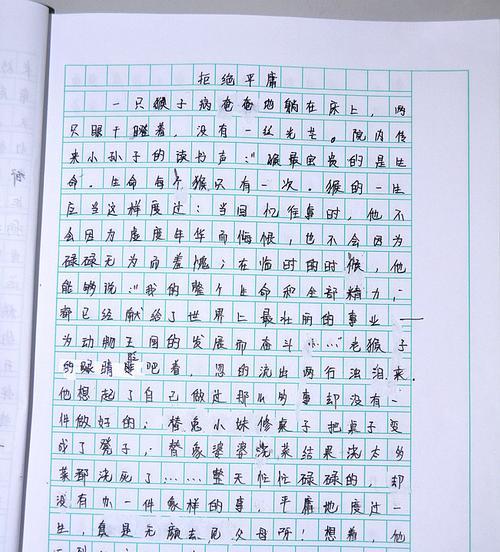 拒绝平庸
一只猴子病爸爸地躺在床上，两
只眼干瞪着，没有一丝光芒。院内传
来小孙子的读书声：“猴最宝贵的是生
命。生命每个猴只有一次。猴的一生
应当这样度过：当回忆往事时，他不
会因为虚度年华而悔恨，也不会因为
碌碌无为而羞愧；在临时的时候，他
能够说：“我的整个生命和全部精力，
都已经献给了世界上最壮丽的事业——
为动物王国的发展而奋斗……”老猴子
的眼睛吧着，忽的流出两行浊泪来。
他想起了自己做过那么多事却没有一
件做好的：替兔小妹修桌子把桌子变
成了凳子；替象婆婆浇菜结果浇太多
菜都浇死了……整天忙忙碌碌的，却
没有办一件象样的事，平庸地度过一
生，真是无颜去见父母所！想着，他